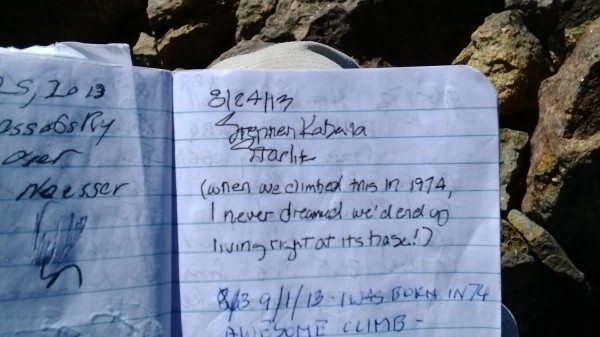 25, 2013
over
8/24/13
Stephen Kabala
Starlit
(when we climbed this in 1974,
I never dreamed we'd end up
living right at its base!)
9/1/13 - I WAS BORN IN 74
AWESOME CLIMB -